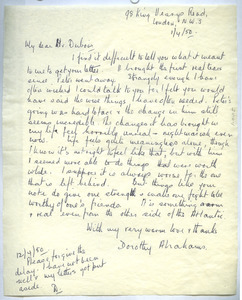 93 King Henry's Road,
London, N.W.3
1/4/50
My dear Dr. Dubois
I find it difficult to tell you what it meant
to me to get your letter. It brought the first real tears
since Peter went away. Strangely enough I have
often wished I could talk to you for I felt you would
have said the wise things I have often needed. Peter's
going was hard to bear & the change in him still
seems incredible. The changes it has brought in
my life feel horribly unreal - nightmareish even
now. Life feels quite meaningless alone, though
I know it's not right to feel like that, but with him
I seemed more able to do things that were worth
while. I suppose it is always worse for the one
that is left behind. But things like your
note do give one strength & make one fight to be
worthy of one's friends. It is something warm
& real even from the other side of the Atlantic
With my very warm love & thanks
Dorothy Abrahams.
12/4/50
Please forgive the
delay. I have not been
well & my letters got put
aside D